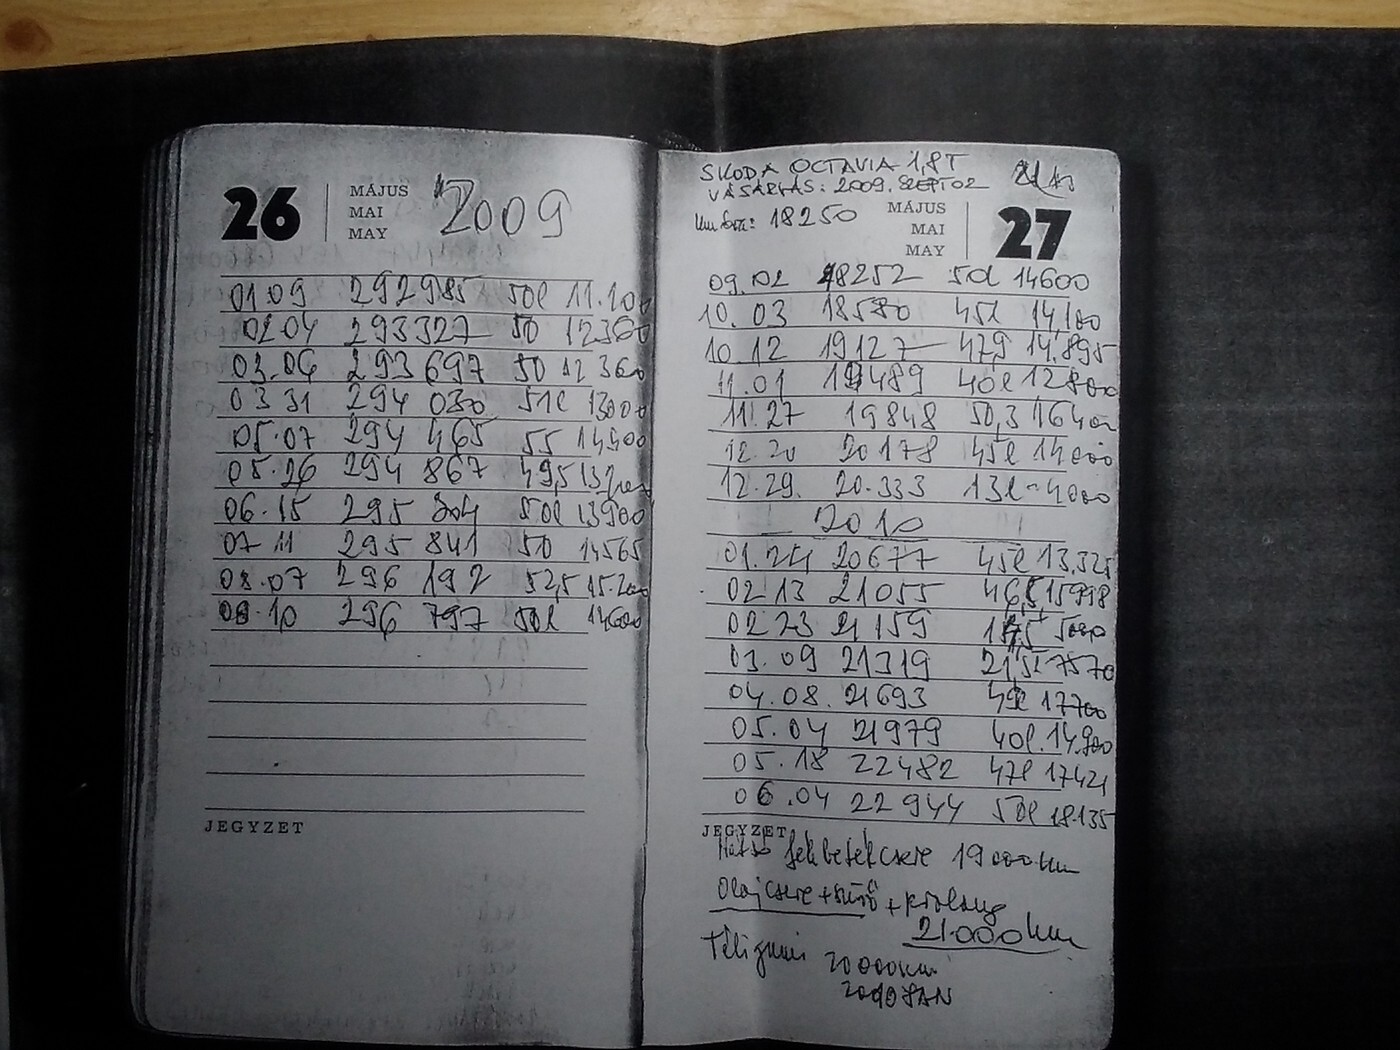 26
MÁJUS
MAI
MAY
2009
01 09 292985 50l 11.100
02 04 293327 50 12360
03.06 293697 50 12360
03 31 294 030 51l 13000
05.07 294 465 55 14900
05.26 294 867 49,5
06.15 295 304 50l 13900
07 11 295 841 50 14565
08.07 296 192 52,5 15.200
09.10 296 797 50l 14600
JEGYZET
SKODA OCTAVIA 1,8T
VÁSÁRLÁS: 2009. SZEPT 02
18250
MÁJUS
MAI
MAY
27
09.02 18252 50l 14600
10.03 18580 45l 14,100
10 12 19127 47,9 14.895
11.01 19489 40l 12800
11.27 19848 50,3 16400
12.20 20178 45l 14000
12.29. 20.333 13l 4000
2010
01.24 20677 45l 13.325
02 13 21055 46,5 15998
02 23 21159 5000
03.09 21319 21,5l 7570
04.08. 21693 17700
05.04 21979 40l. 14.900
05.18 22482 47l 17421
06.04 22944 50l 18.135
JEGYZET
Hátsó fékbetétcsere 19000km
Olajcsere + szűrő +
21.000km
Téli gumi 20000km
2010 JAN